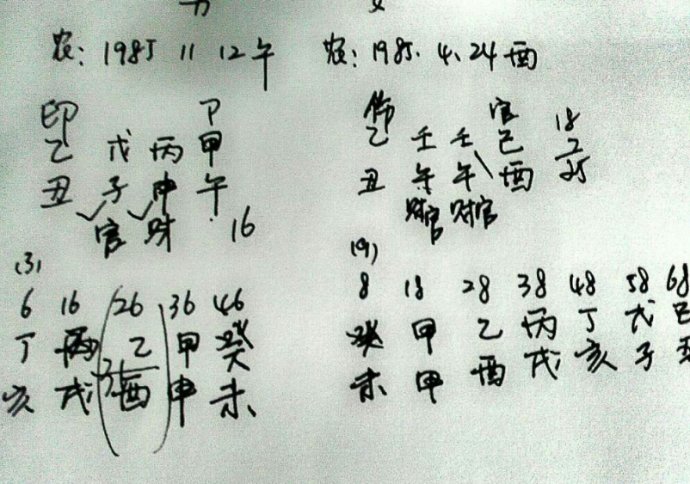 农: 1985 11 12午
印 卩
乙 戊 丙 甲
丑 子 申 午
官 财 16
(3)
6 16 26 36 46
丁 丙 乙 甲 癸
亥 戌 酉 申 未
农: 1985. 4. 24 酉
伤 官 18
乙 壬 壬 己 7
丑 午 午 酉 25
财官 财官
(9)
8 18 28 38 48 58 68
癸 甲 乙 丙 丁 戊 己
未 甲 酉 戌 亥 子